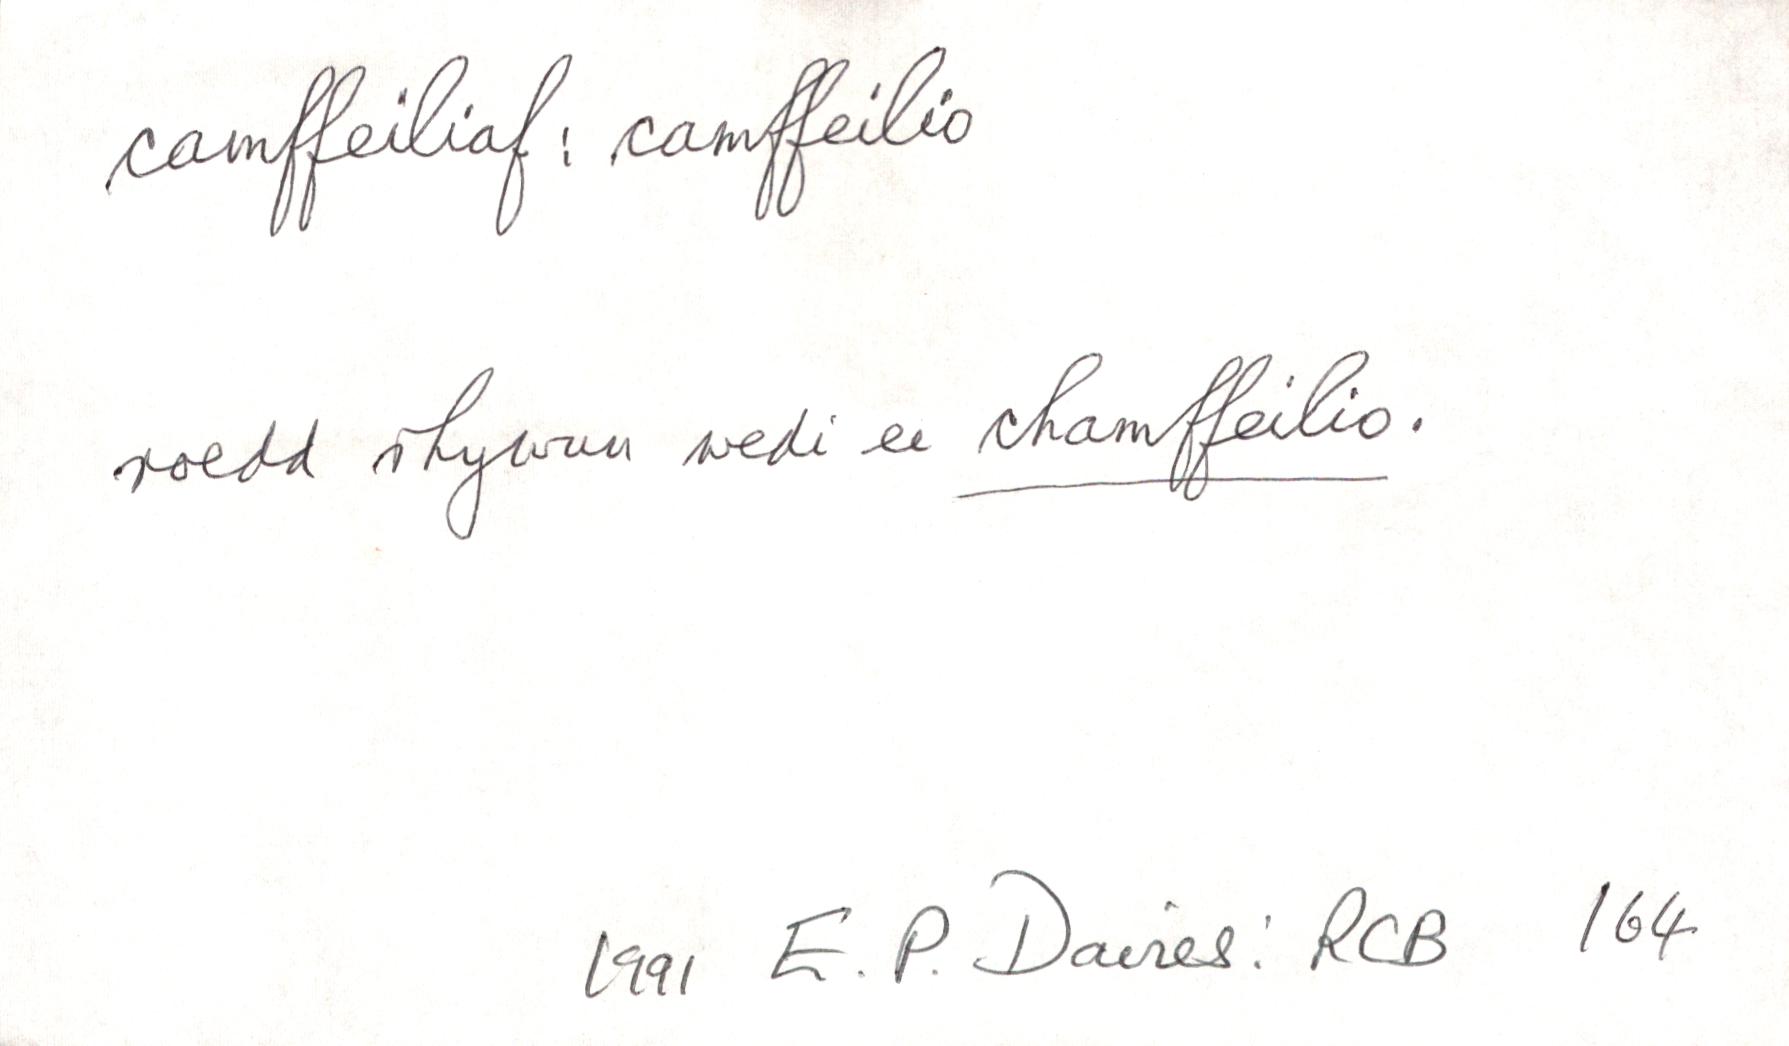 camffeiliaf: camffeilio
roedd rhywun wedi ei chamffeilio.
1991 E. P. Davies: RCB 164